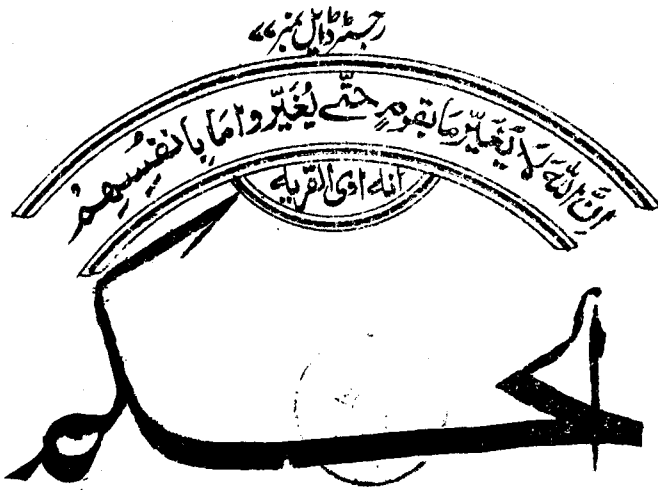 رجسٹرڈ ایل نمبر ۷۷
اِنَّ اللّٰهَ لَا یُغَیِّرُ مَا بِقَومٍ حَتّٰے یُغَیِّرُوا مَا بِاَنفُسِهِمُ
انه اوی القریه
الحکم